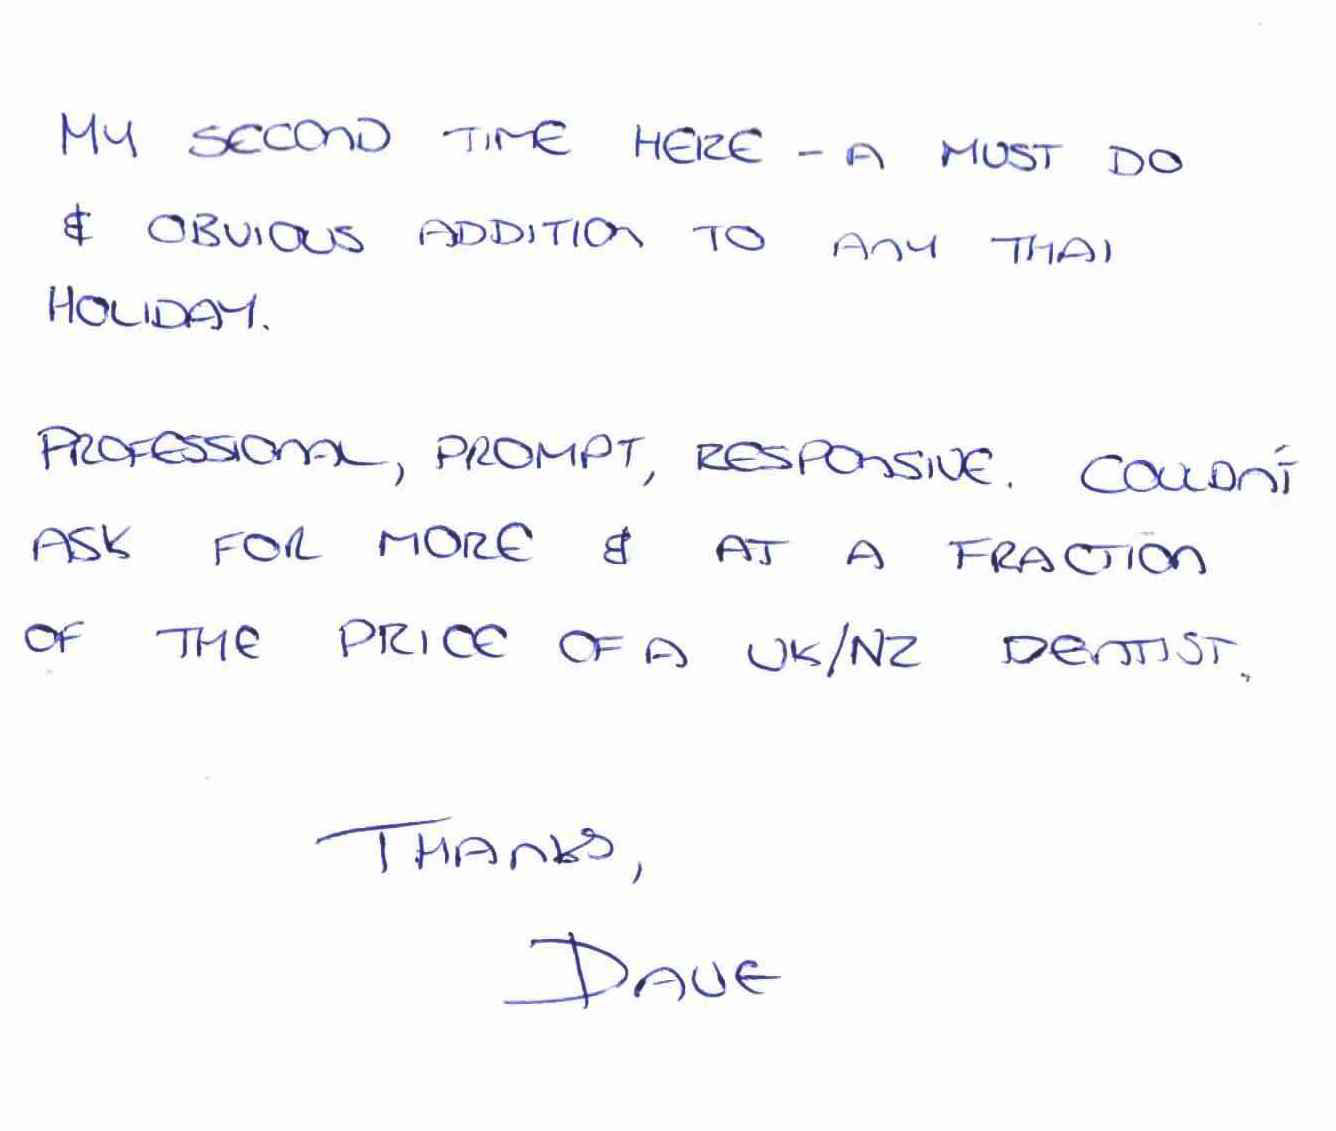 MY SECOND TIME HERE - A MUST DO
& OBVIOUS ADDITION TO ANY THAI
HOLIDAY.
PROFESSIONAL, PROMPT, RESPONSIVE. COULDN'T
ASK FOR MORE & AT A FRACTION
OF THE PRICE OF A UK/NZ DENTIST.
THANKS,
DAVE